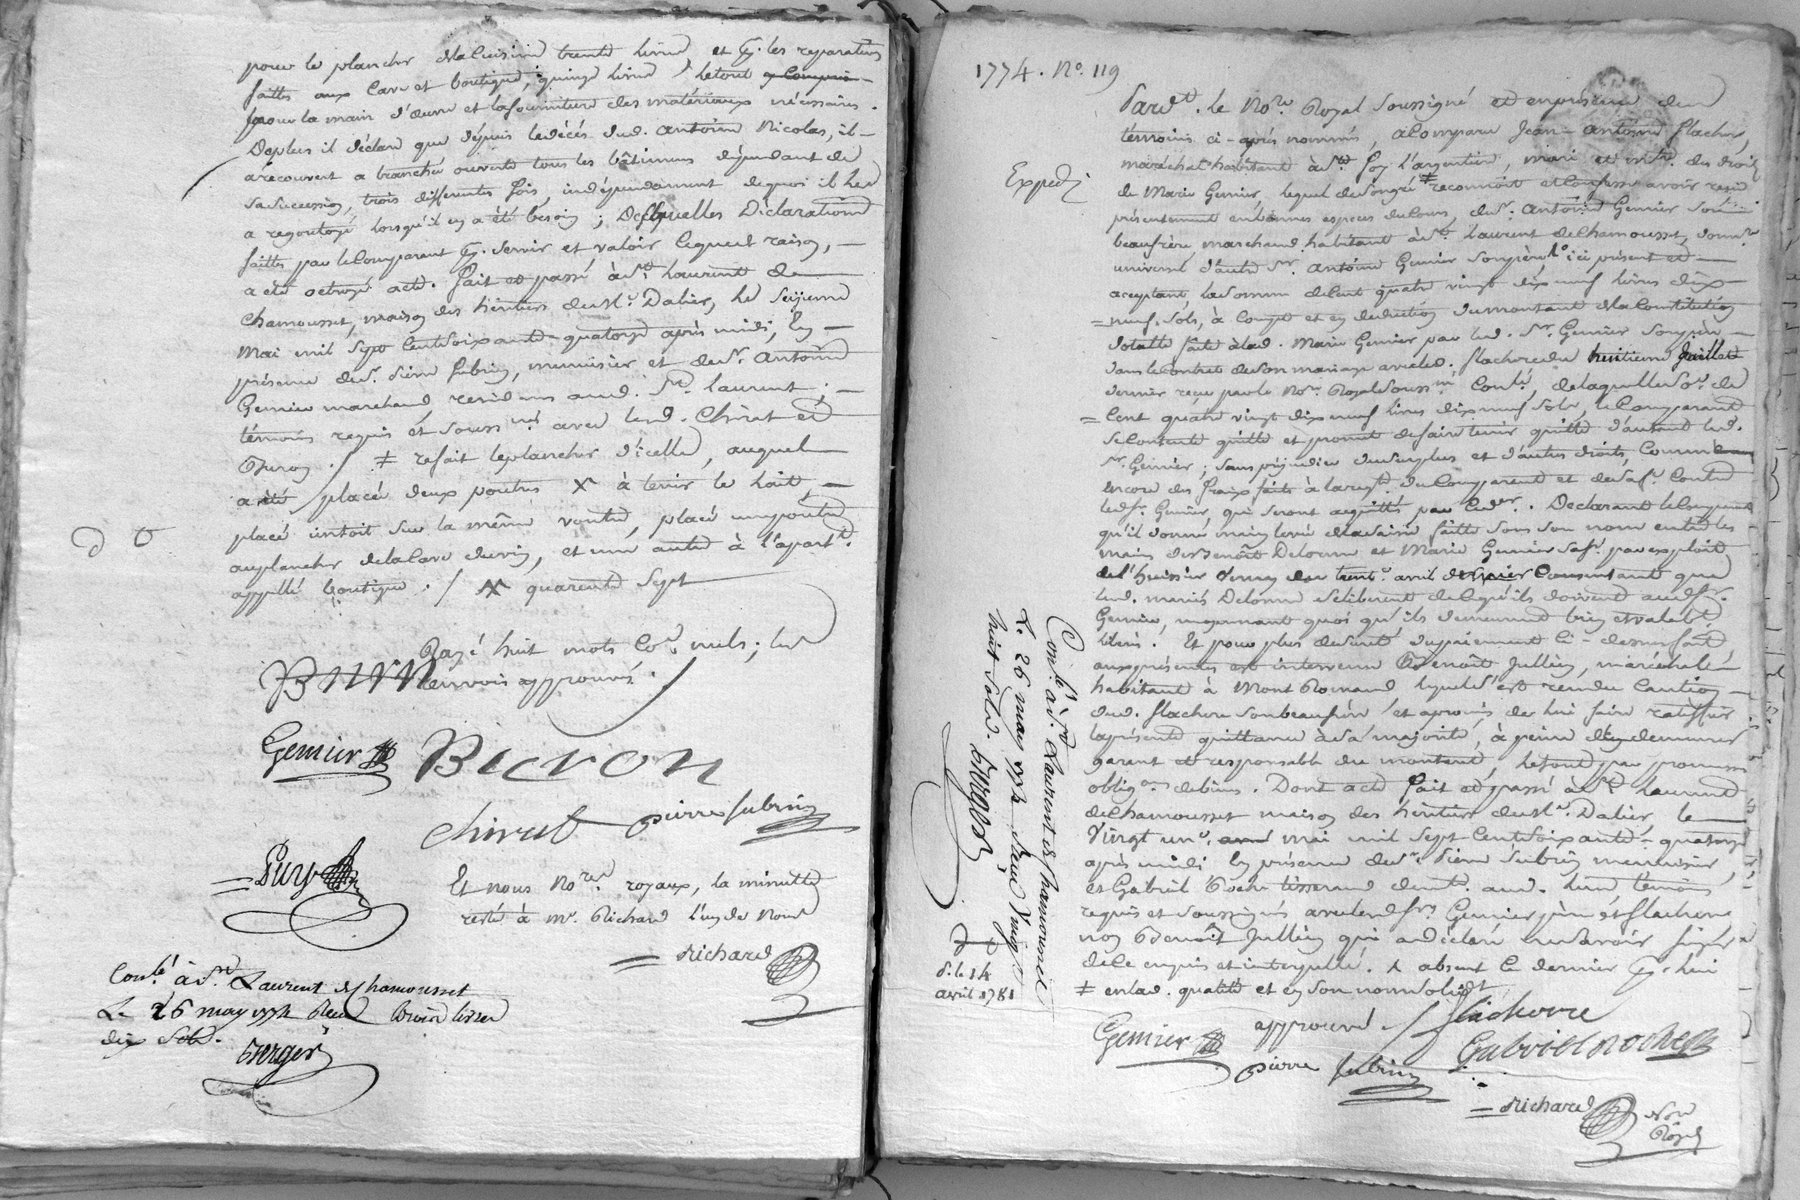 pour le plancher de la cuisine trente livres et pr. les reparations
faittes aux cave et boutique, quinze livres, le tout y compris
pour la main d'œuvre et la fourniture des matériaux nécessaires.
De plus il déclare que depuis le décès dud. Antoine Nicolas, il
a recouvert a tranchée ouverte tous les bâtimens dépendant de
sa succession, trois differentes fois, indépendament de quoi il les
a regoutoyé lorsqu'il en a été besoin ; Desquelles Déclarations
faittes par le Comparant pr. servir et valoir ce que de raison,
a été octroyé acte. fait et passé à St. Laurent de
Chamousset, maison des héritiers du Sr. Dalier, le seizieme
Mai mil sept cent soixante-quatorze après midi, En
présence de Sr. pierre Subrin, menuisier et de Sr. Antoine
Gemier marchand residans aud. St. Laurent,
témoins requis et soussignés avec led. Chirat et
./. ≠ refait le plancher d'icelle, auquel
a été placé deux poutres X à tenir le toit,
placé un toit sur la même voute, placé une poutre
au plancher de la cave du vin, et une autre à l'apart.
appellé boutique ./. X quarente sept
Rayé huit mots Co. nuls ; les
renvois approuvés.
Gemier
Chirat pierre Subrin
Puy
Et nous Nores. royaux, la minutte
resté à Me. Richard l'un de nous
Richard
Conlé. à St. Laurent de Chamousset
Le 26 may 1774 Reçu
dix sols.
Berger
1774. No. 119
Expedié
Pardt. le Nore. Royal soussigné et en présence des
témoins ci-après nommés, a Comparu Jean-Antoine flachere,
maréchal habitant à Ste. foy l'argentiere, mari et mtre. des droits
de Marie Gemier, lequel de son gré ≠ reconnoit et Confesse avoir reçu
présentement en bonnes especes de Cours, de Sr. Antoine Gemier son
beaufrère, marchand habitant à St. Laurent de Chamousset,
universel d'autre Sr. Antoine Gemier son père, ici présent et
acceptant, la somme de Cent quatre vingt dix neuf livres dix
neuf sols, à Compte et en déduction du montant de la Constitution
dotalle faite à lad. Marie Gemier par led. Sr. Gemier son père
dans le Contrat de son mariage avec led. flachere du huitieme Juillet
dernier reçu par le Nore. Royal souss. Conlé, de laquelle so. de
Cent quatre vingt dix neuf livres dix neuf sols, le Comparant
se Contente quitte et promet de faire tenir quitte d'autant led.
Sr. Gemier ; sans préjudice du surplus et d'autres droits, Comme
encore des fraix faits à la reqte. du Comparant et de sa fe. Contre
led. Sr. Gemier, qui seront acquittés par . Declarant le Comparant
qu'il donne main levée de la saisie faitte sous son nom entre les
mains de Benoît Delorme et Marie Gemier sa fe. par exploit
de l'huissier du trente avril dernier Consentant que
led. mariés Delorme se liberent de ce qu'ils doivent aud. Sr.
Gemier, moyennant quoi qu'ils demeurent bien et valablt.
liberés. Et pour plus de sureté du paiement ci-dessus fait,
aux présentes est intervenu Benoît Jullien, maréchal
habitant à Mont Romand lequel s'est rendu Caution
dud. flachere son beaufrère et a promis de lui faire ratiffier
la présente quittance à sa majorité, à peine d'en demeurer
garant et responsable du montant, le tout par promesse
obligon. de biens. Dont acte fait et passé à St. Laurent
de Chamousset maison des héritiers du Sr. Dalier, le
Vingt un mai mil sept Cent soixante-quatorze
après midi En présence de Sr. pierre Subrin menuisier,
et Gabriel Roche tisserand demt. aud. lieu témoins
requis et soussignés avec lesd. srs. Gemier père et flachere
non Benoît Jullien qui a déclaré ne savoir signer
de Ce enquis et interpellé. absent Ce dernier pr. lui
≠ en lad. qualité et en son nom
approuvé ./. flachere
Gemier Gabriel Roche
pierre Subrin
Richard Nore
Royal
Conlé. à St. Laurent de Chamousset
Le 26 may 1774 Reçu
huit sols. Berger
D. le 14
avril 1781